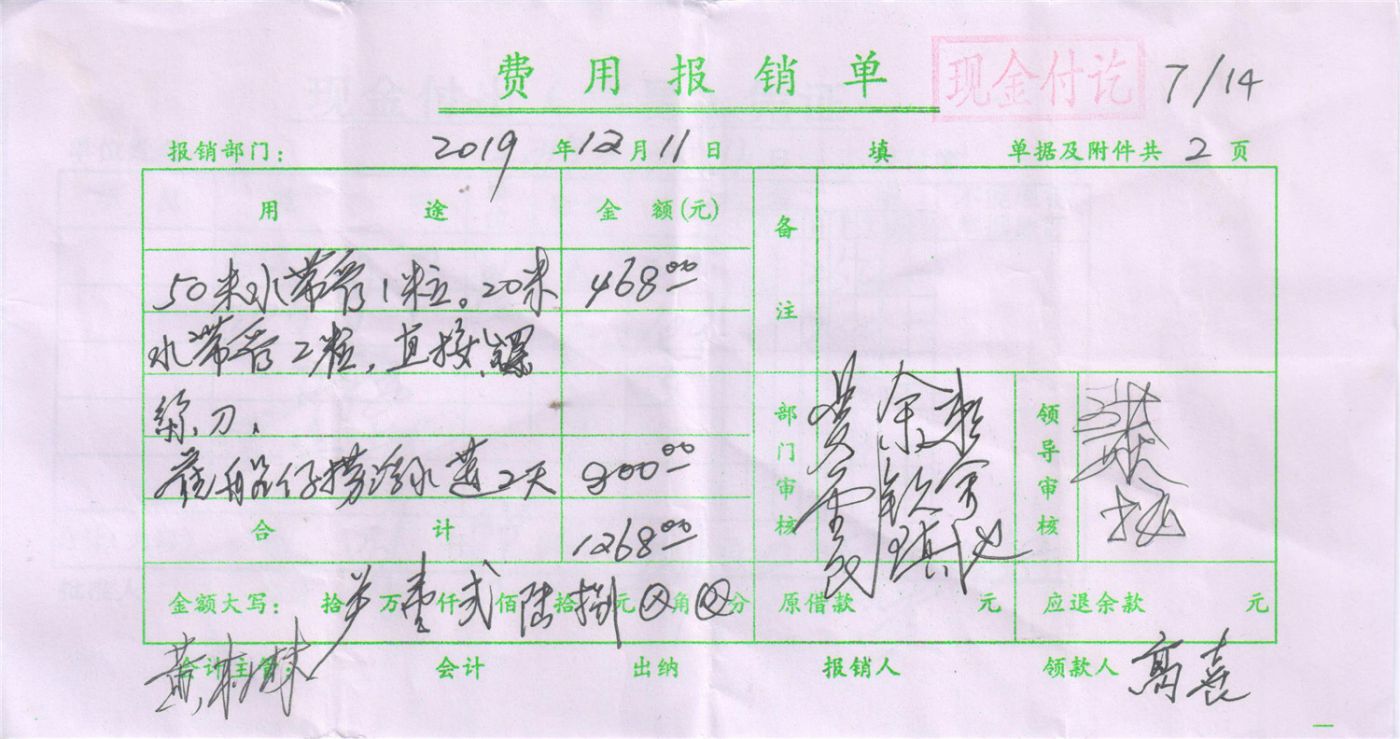 费用报销单 现金付讫 7/14
报销部门： 2019年12月11日 填 单据及附件共2页
用途 金额(元) 备注
50米水带管1粒。20米 468.00
水带管2粒，直接、螺
絲刀，
船仔捞浮水莲2天 800.00
合计 1268.00
部门审核 领导审核
金额大写： 拾 万壹仟弍佰陆拾捌元⊗角⊗分 原借款 元 应退余款 元
会计主管： 会计 出纳 报销人 领款人